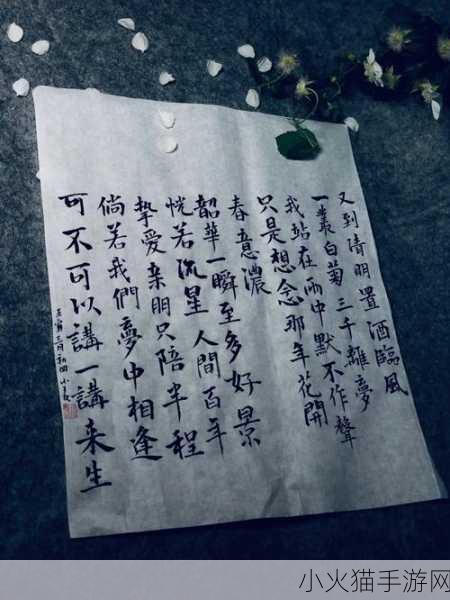 又到清明置酒臨風
一叢白菊三千離夢
我站在雨中默不作聲
只是想念那年花開
春意濃
韶華一瞬至多好景
恍若流星人間百年
摯愛亲朋只陪半程
倘若我們夢中相逢
可不可以講一講来生
壬寅三月初四
小火猫手游网